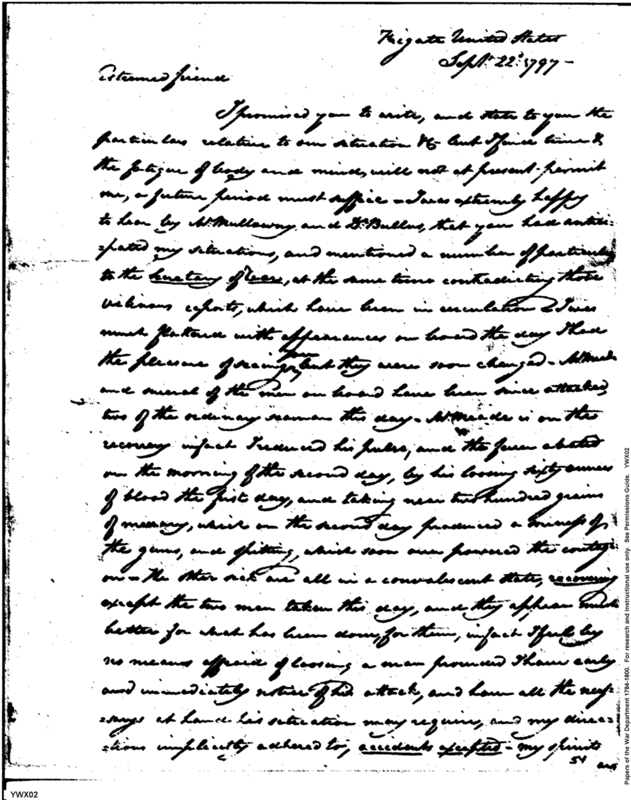 Frigate United States
Sept. 22d. 1797 -
Esteemed friend
I promised you to write, and state to you the
particulars relative to our situation &c but I find time &
the fatigue of body and mind, will not at present permit
me, a future period must suffice - I was extremely happy
to hear by Mr. Mullowny and Dr. Bullus, that you had antici-
-pated my situation, and mentioned a number of particulars
to the Secretary of War, at the same time contradicting those
villinous reports, which have been in circulation I was
much flattered with appearances on board the day I had
the pleasure of seeing you, but they were soon changed - Mr. Meade
and several of the men on board have been since attacked,
two of the ordinary seaman this day - Mr. Meade is on the
recovery infact I reduced his pulse, and the fever abated
on the morning of the second day, by his loosing sixty ounces
of blood the first day, and taking near two hundred grains
of mercury, which on the second day produced a soreness of
the gums, and spitting, which soon over powered the contagi-
on - the other sick are all in a convalescent state,
except the two men taken this day, and they appear much
better for what has been done, for them, infact I feel by
no means affraid of loosing a man provided I have early
and immediately notice of his attack, and have all the neces-
-sarys at hand his situation may require, and my direc-
-tions implicitly adhered to, accidents excepted - my spirits
54 are
YWX02
Papers of the War Department 1784-1800. For research and instructional use only. See Permissions Guide. YWX02